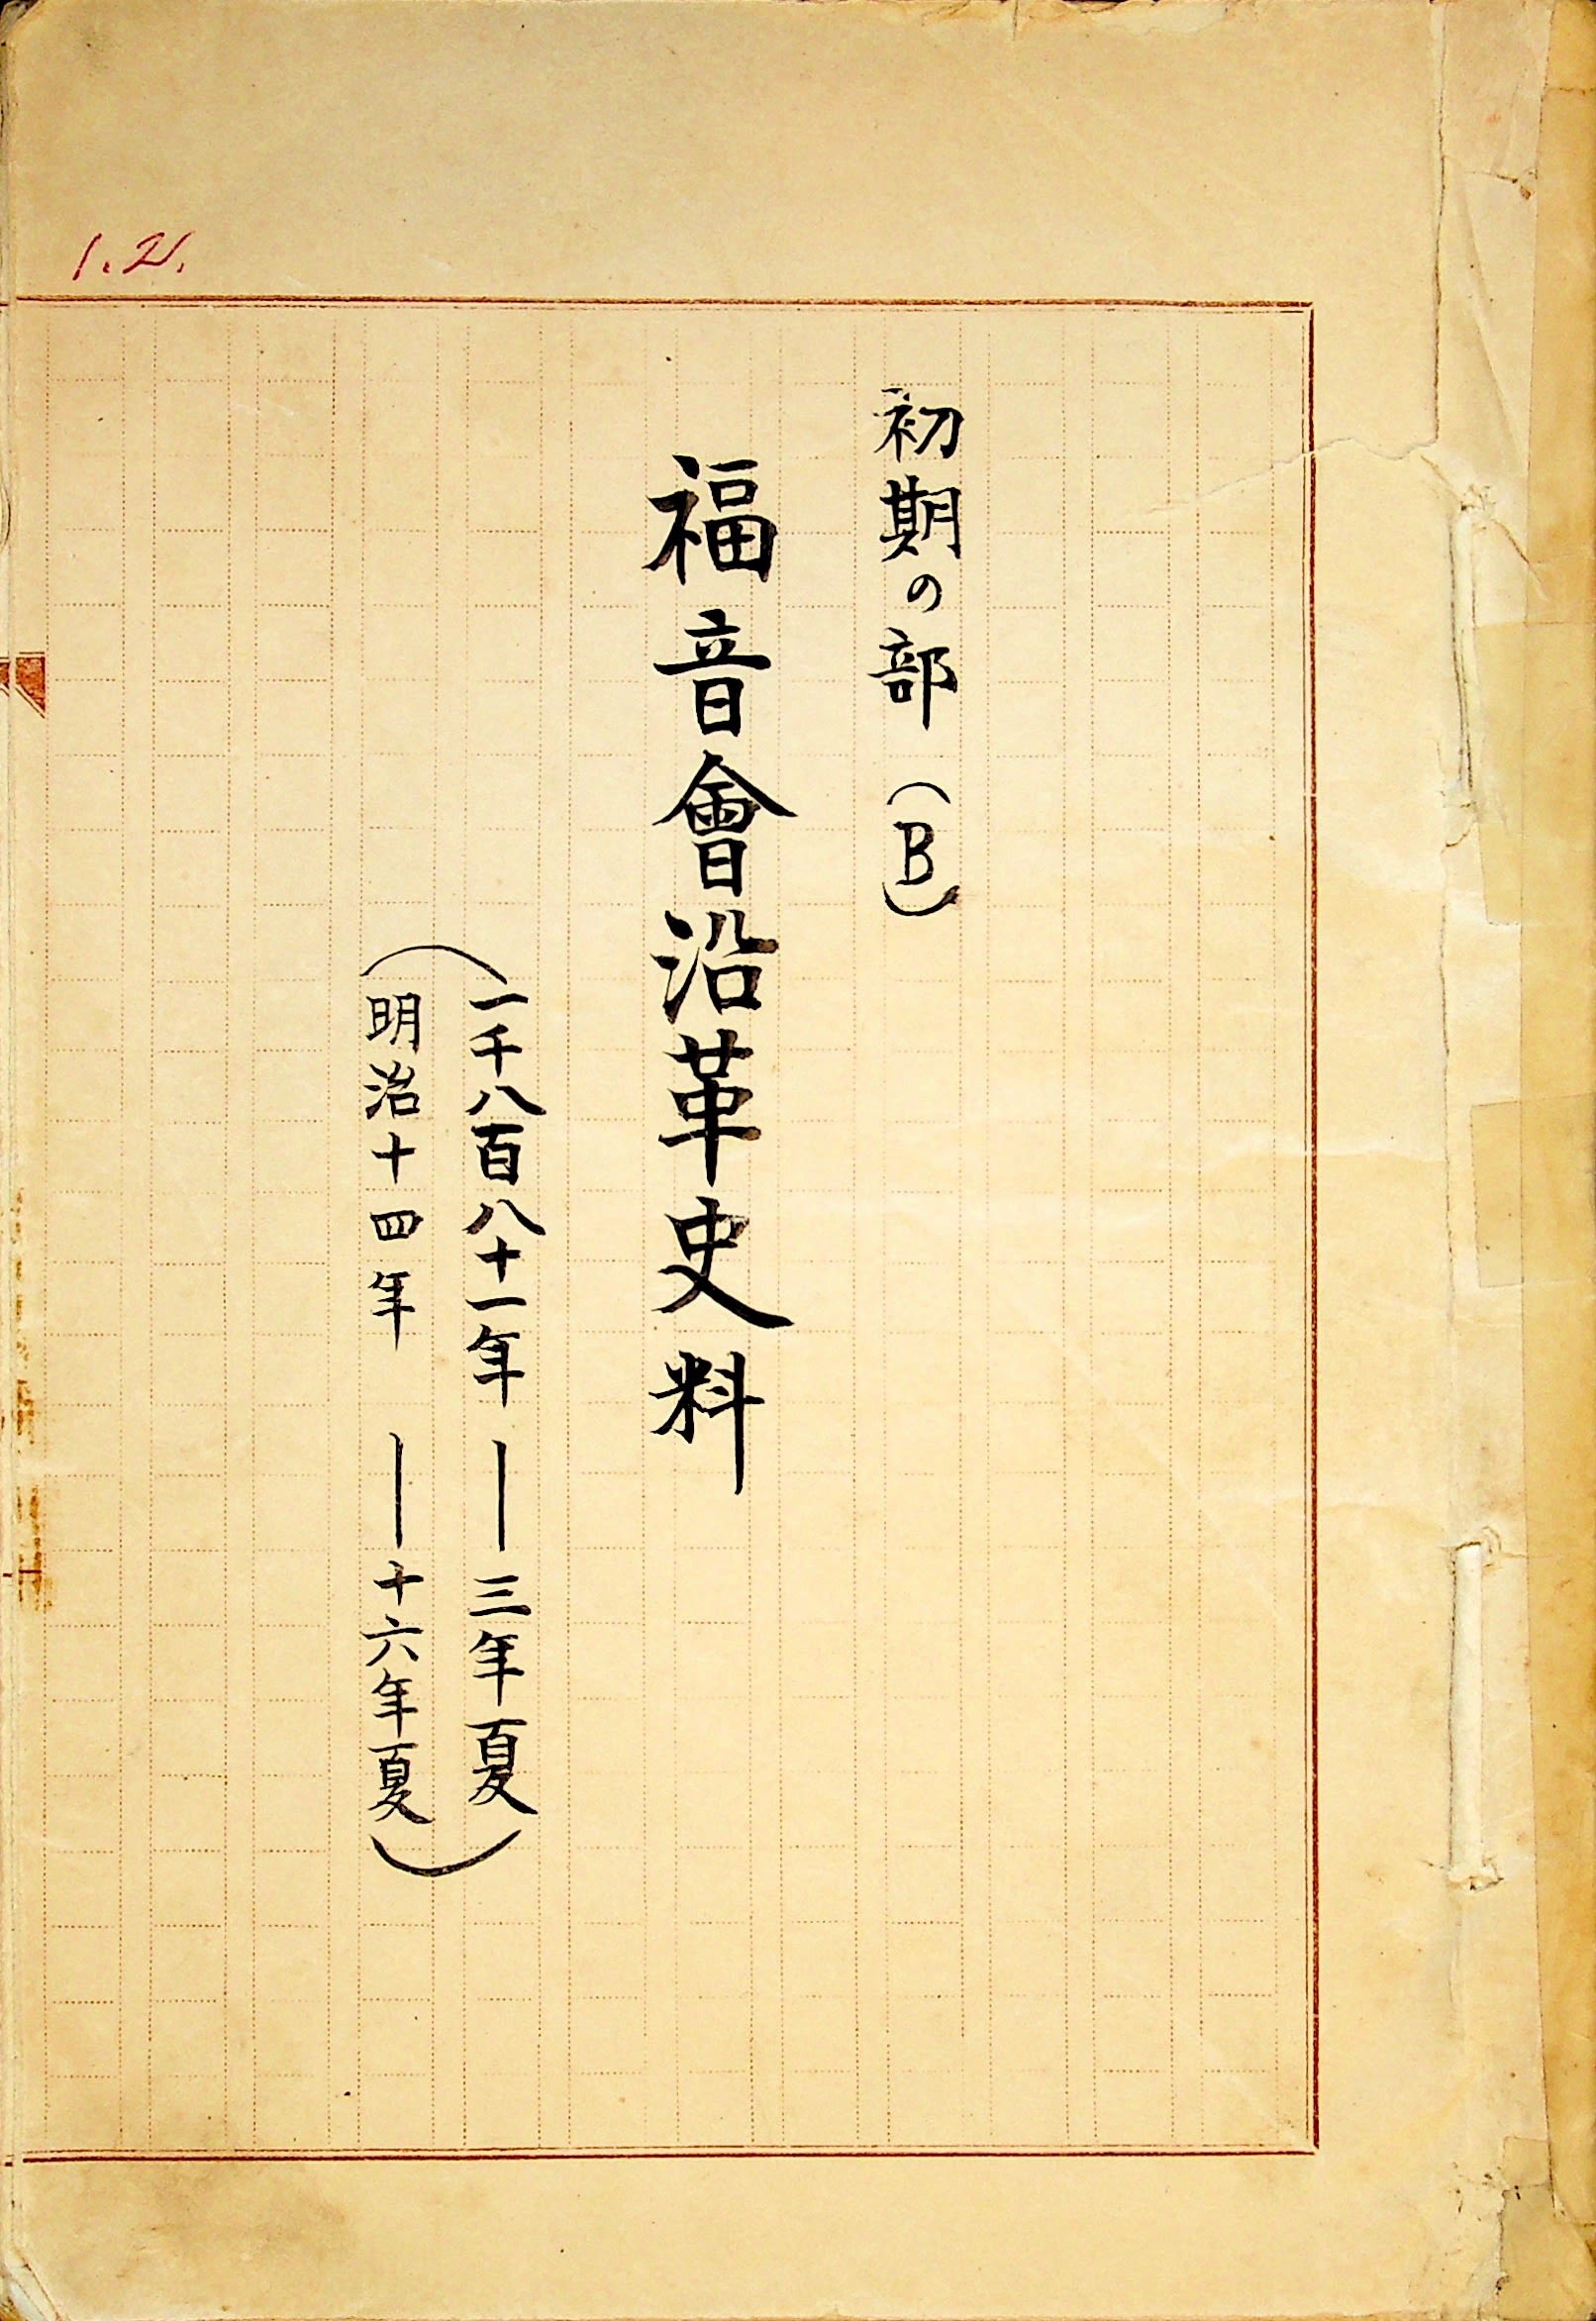 1.2.
初期の部（B）
福音會沿革史料
（一千八百八十一年――三年夏
明治十四年――十六年夏）